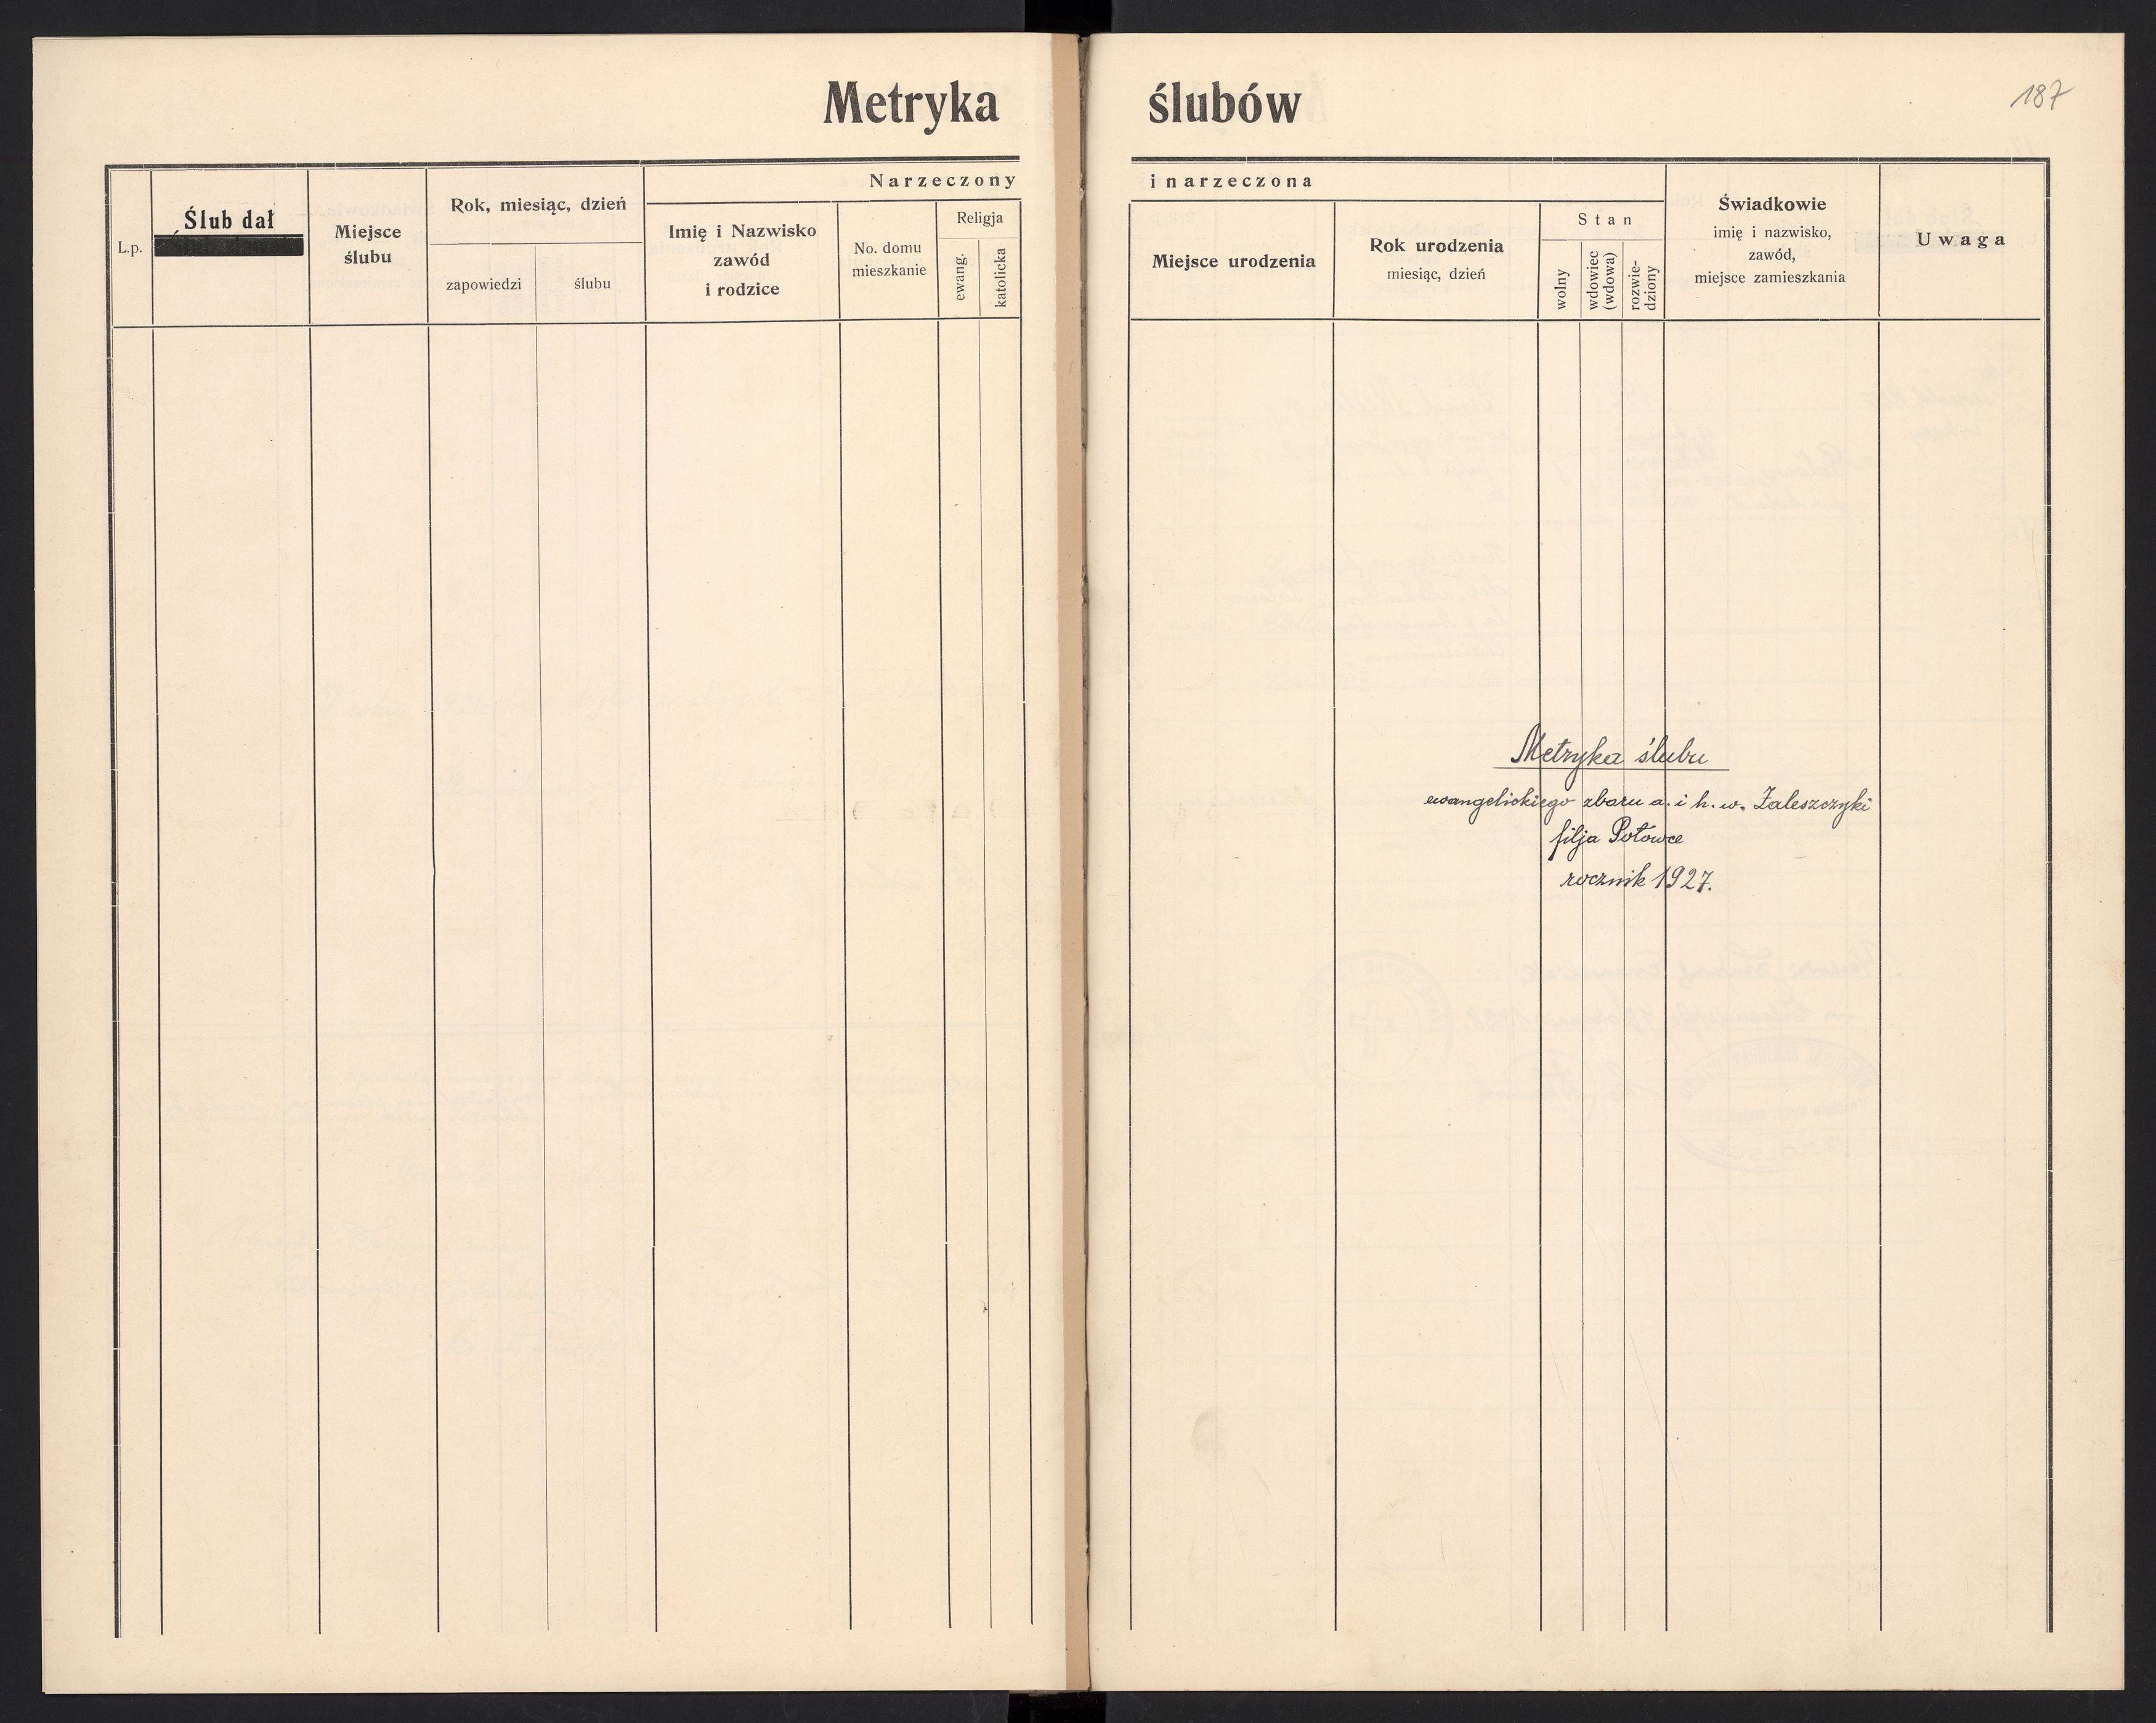 Metryka ślubów
187
Narzeczony i narzeczona
L.p.
Ślub dał
Miejsce
ślubu
Rok, miesiąc, dzień
zapowiedzi
ślubu
Imię i Nazwisko
zawód
i rodzice
No. domu
mieszkanie
Religja
ewang.
katolicka
Miejsce urodzenia
Rok urodzenia
miesiąc, dzień
Stan
wolny
wdowiec
(wdowa)
rozwie-
dziony
Świadkowie
imię i nazwisko,
zawód,
miejsce zamieszkania
Uwaga
Metryka ślubu
ewangelickiego zboru a. i h. w. Zaleszczyki
filja Potowce
rocznik 1927.